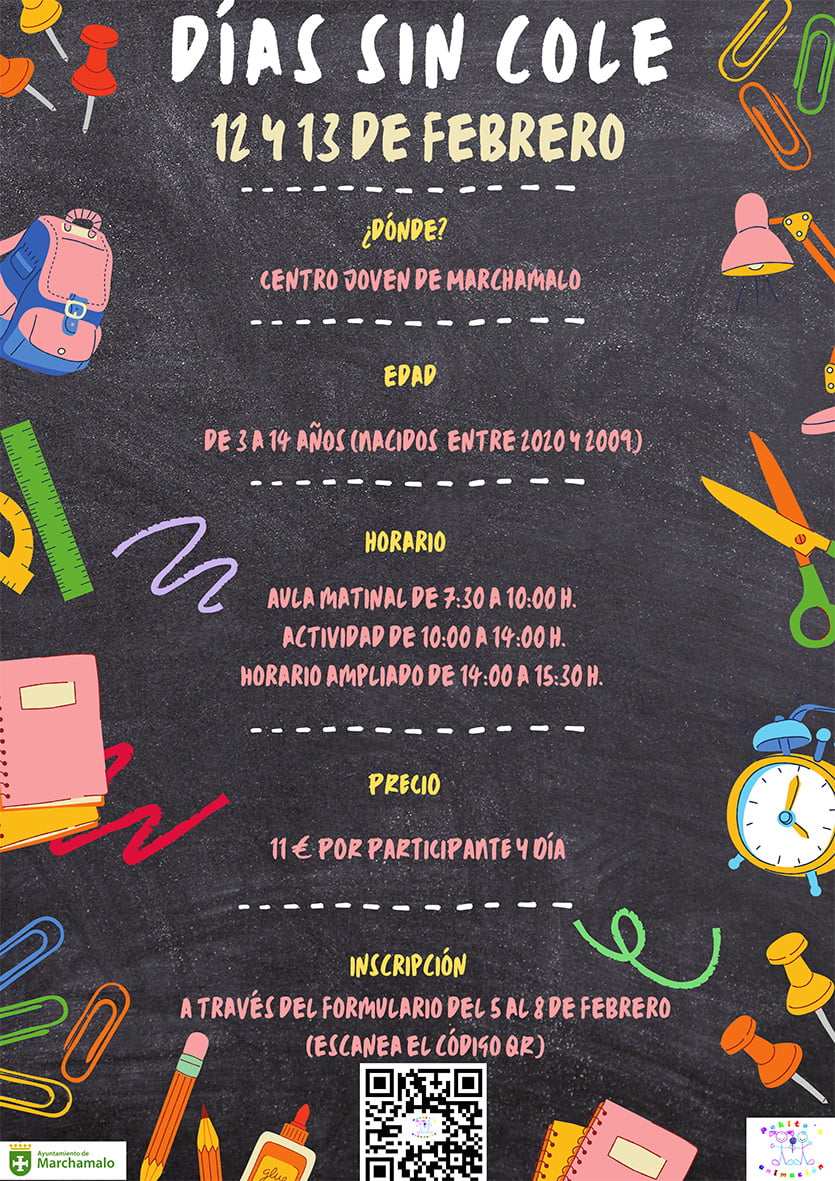 DÍAS SIN COLE
12 Y 13 DE FEBRERO
¿DÓNDE?
CENTRO JOVEN DE MARCHAMALO
EDAD
DE 3 A 14 AÑOS (NACIDOS ENTRE 2020 Y 2009)
HORARIO
AULA MATINAL DE 7:30 A 10:00 H.
ACTIVIDAD DE 10:00 A 14:00 H.
HORARIO AMPLIADO DE 14:00 A 15:30 H.
PRECIO
11 € POR PARTICIPANTE Y DÍA
INSCRIPCIÓN
A TRAVÉS DEL FORMULARIO DEL 5 AL 8 DE FEBRERO
(ESCANEA EL CÓDIGO QR)
glue
Ayuntamiento de
Marchamalo
animación